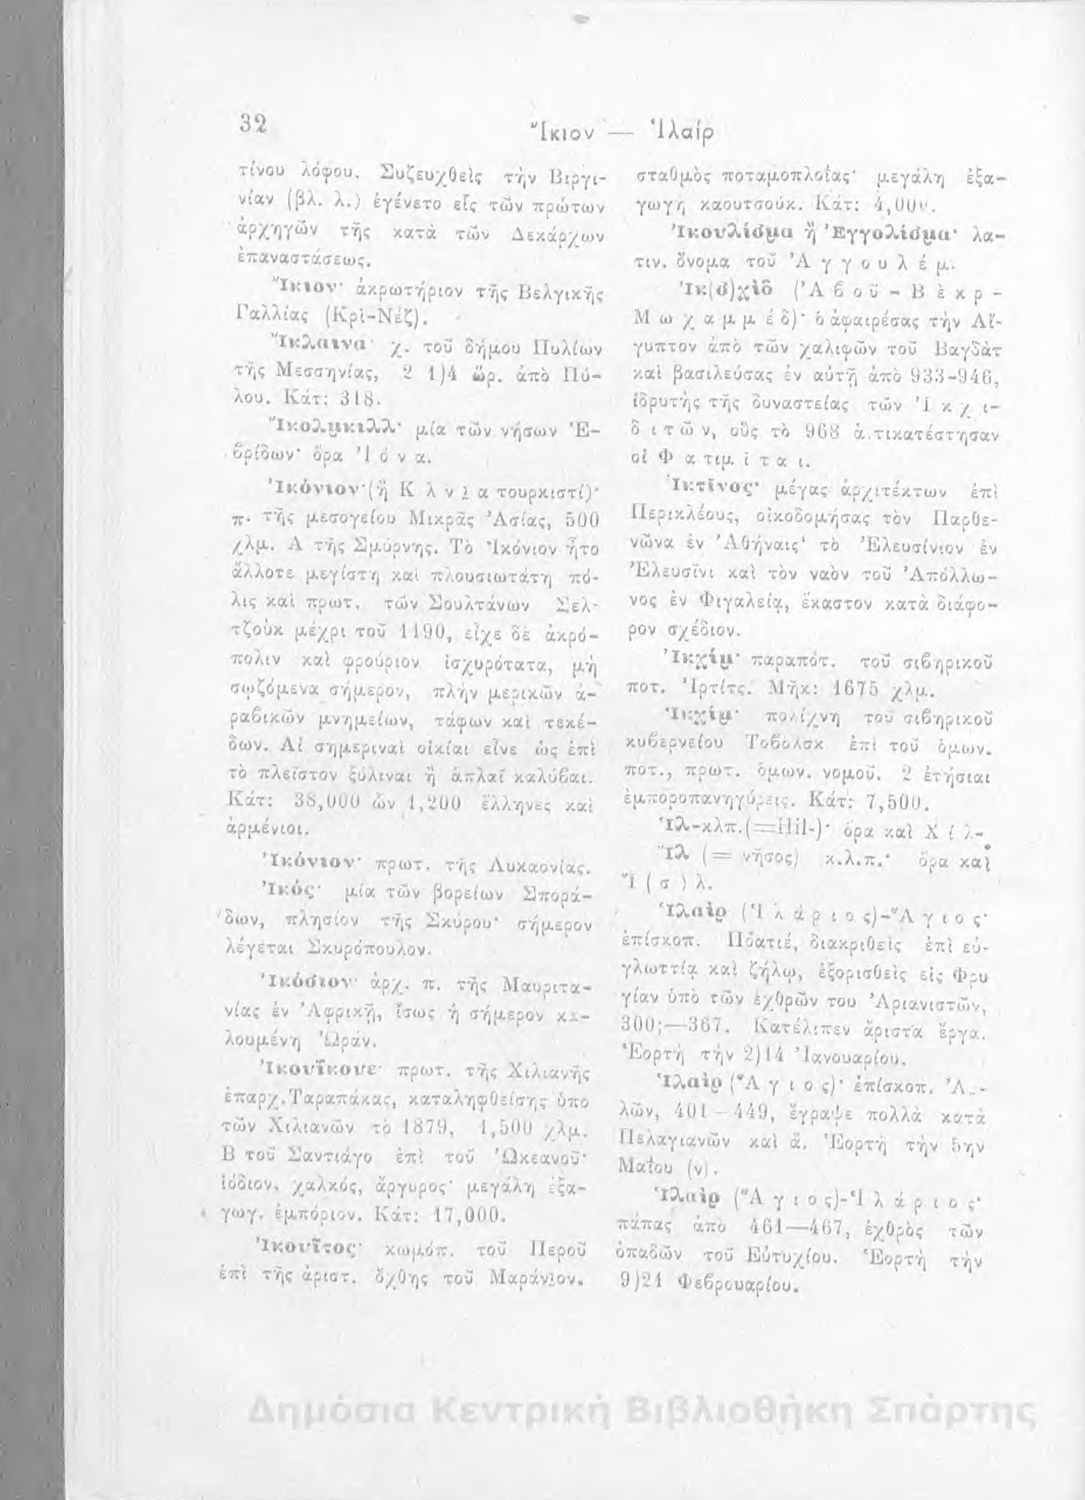 32
Ἴκιον — Ἱλαίρ
τίνου λόφου. Συζευχθεὶς τὴν Βιργι-
νίαν (βλ. λ.) ἐγένετο εἷς τῶν πρώτων
ἀρχηγῶν τῆς κατὰ τῶν Δεκάρχων
ἐπαναστάσεως.
Ἴκιον· ἀκρωτήριον τῆς Βελγικῆς
Γαλλίας (Κρὶ-Νέζ).
Ἴκλαινα· χ. τοῦ δήμου Πυλίων
τῆς Μεσσηνίας, 2 1)4 ὥρ. ἀπὸ Πύ-
λου. Κάτ: 318.
Ἰκολμκιλλ· μία τῶν νήσων Ἐ-
βρίδων· ὅρα Ἰ ό ν α.
Ἰκόνιον·(ἢ Κ λ ν ι α τουρκιστί)·
π. τῆς μεσογείου Μικρᾶς Ἀσίας, 500
χλμ. Α τῆς Σμύρνης. Τὸ Ἰκόνιον ἦτο
ἄλλοτε μεγίστη καὶ πλουσιωτάτη πό-
λις καὶ πρωτ. τῶν Σουλτάνων Σελ-
τζοὺκ μέχρι τοῦ 1190, εἶχε δὲ ἀκρό-
πολιν καὶ φρούριον ἰσχυρότατα, μὴ
σῳζόμενα σήμερον, πλὴν μερικῶν ἀ-
ραβικῶν μνημείων, τάφων καὶ τεκέ-
δων. Αἱ σημεριναὶ οἰκίαι εἶνε ὡς ἐπὶ
τὸ πλεῖστον ξύλιναι ἢ ἁπλαῖ καλύβαι.
Κάτ: 38,000 ὧν 1,200 ἕλληνες καὶ
ἀρμένιοι.
Ἰκόνιον· πρωτ. τῆς Λυκαονίας.
Ἰκός· μία τῶν βορείων Σπορά-
δων, πλησίον τῆς Σκύρου· σήμερον
λέγεται Σκυρόπουλον.
Ἰκόσιον· ἀρχ. π. τῆς Μαυριτα-
νίας ἐν Ἀφρικῇ, ἴσως ἡ σήμερον κα-
λουμένη Ὠράν.
Ἰκουΐκουε· πρωτ. τῆς Χιλιανῆς
ἐπαρχ.Ταραπάκας, καταληφθείσης ὑπο
τῶν Χιλιανῶν τὸ 1879, 1,500 χλμ.
Β τοῦ Σαντιάγο ἐπὶ τοῦ Ὠκεανοῦ·
ἰόδιον, χαλκός, ἄργυρος· μεγάλη ἐξα-
γωγ. ἐμπόριον. Κάτ: 17,000.
Ἰκουΐτος· κωμόπ. τοῦ Περοῦ
ἐπὶ τῆς ἀριστ. ὄχθης τοῦ Μαράνιον.
σταθμὸς ποταμοπλοΐας· μεγάλη ἐξα-
γωγὴ καουτσούκ. Κάτ: 4,000.
Ἰκουλίσμα ἢ Ἐγγολίσμα· λα-
τιν. ὄνομα τοῦ Ἀ γ γ ο υ λ έ μ.
Ἰκ(σ)χὶδ (Ἀ β ο ῦ - Β ὲ κ ρ -
Μ ω χ α μ μ έ δ)· ὁ ἀφαιρέσας τὴν Αἴ-
γυπτον ἀπὸ τῶν χαλιφῶν τοῦ Βαγδὰτ
καὶ βασιλεύσας ἐν αὐτῇ ἀπὸ 933-946,
ἱδρυτὴς τῆς δυναστείας τῶν Ἰ κ χ ι-
δ ι τ ῶ ν, οὓς τὸ 968 ἀντικατέστησαν
οἱ Φ α τιμ ῖ τ α ι.
Ἰκτῖνος· μέγας ἀρχιτέκτων ἐπὶ
Περικλέους, οἰκοδομήσας τὸν Παρθε-
νῶνα ἐν Ἀθήναις· τὸ Ἐλευσίνιον ἐν
Ἐλευσῖνι καὶ τὸν ναὸν τοῦ Ἀπόλλω-
νος ἐν Φιγαλείᾳ, ἕκαστον κατὰ διάφο-
ρον σχέδιον.
Ἰκχίμ· παραπότ. τοῦ σιβηρικοῦ
ποτ. Ἰρτίτς. Μῆκ: 1675 χλμ.
Ἰκχίμ· πολίχνη τοῦ σιβηρικοῦ
κυβερνείου Τοβόλσκ ἐπὶ τοῦ ὁμων.
ποτ., πρωτ. ὁμων. νομοῦ. 2 ἐτήσιαι
ἐμποροπανηγύρεις. Κάτ: 7,500.
Ἰλ-κλπ.(=Hil-)· ὅρα καὶ Χ ί λ-
Ἴλ (= νῆσος) κ.λ.π.· ὅρα καὶ
Ἰ ( σ ) λ.
Ἱλαὶρ (Ἱ λ ά ρ ι ο ς)-Ἅ γ ι ο ς·
ἐπίσκοπ. Ποατιέ, διακριθεὶς ἐπὶ εὐ-
γλωττίᾳ καὶ ζήλῳ, ἐξορισθεὶς εἰς Φρυ
γίαν ὑπὸ τῶν ἐχθρῶν του Ἀριανιστῶν,
300;—367. Κατέλιπεν ἄριστα ἔργα.
Ἑορτὴ τὴν 2)14 Ἰανουαρίου.
Ἱλαὶρ (Ἅ γ ι ο ς)· ἐπίσκοπ. Ἀρ-
λῶν, 401—449, ἔγραψε πολλὰ κατὰ
Πελαγιανῶν καὶ ἄ. Ἑορτὴ τὴν 5ην
Μαΐου (ν).
Ἱλαὶρ (Ἅ γ ι ο ς)-Ἱ λ ά ρ ι ο ς·
πάπας ἀπὸ 461—467, ἐχθρὸς τῶν
ὀπαδῶν τοῦ Εὐτυχίου. Ἑορτὴ τὴν
9)21 Φεβρουαρίου.
Δημόσια Κεντρική Βιβλιοθήκη Σπάρτης